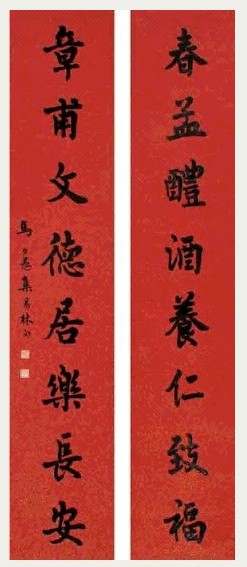 春孟醴酒養仁致福
章甫文德居樂長安
集易林